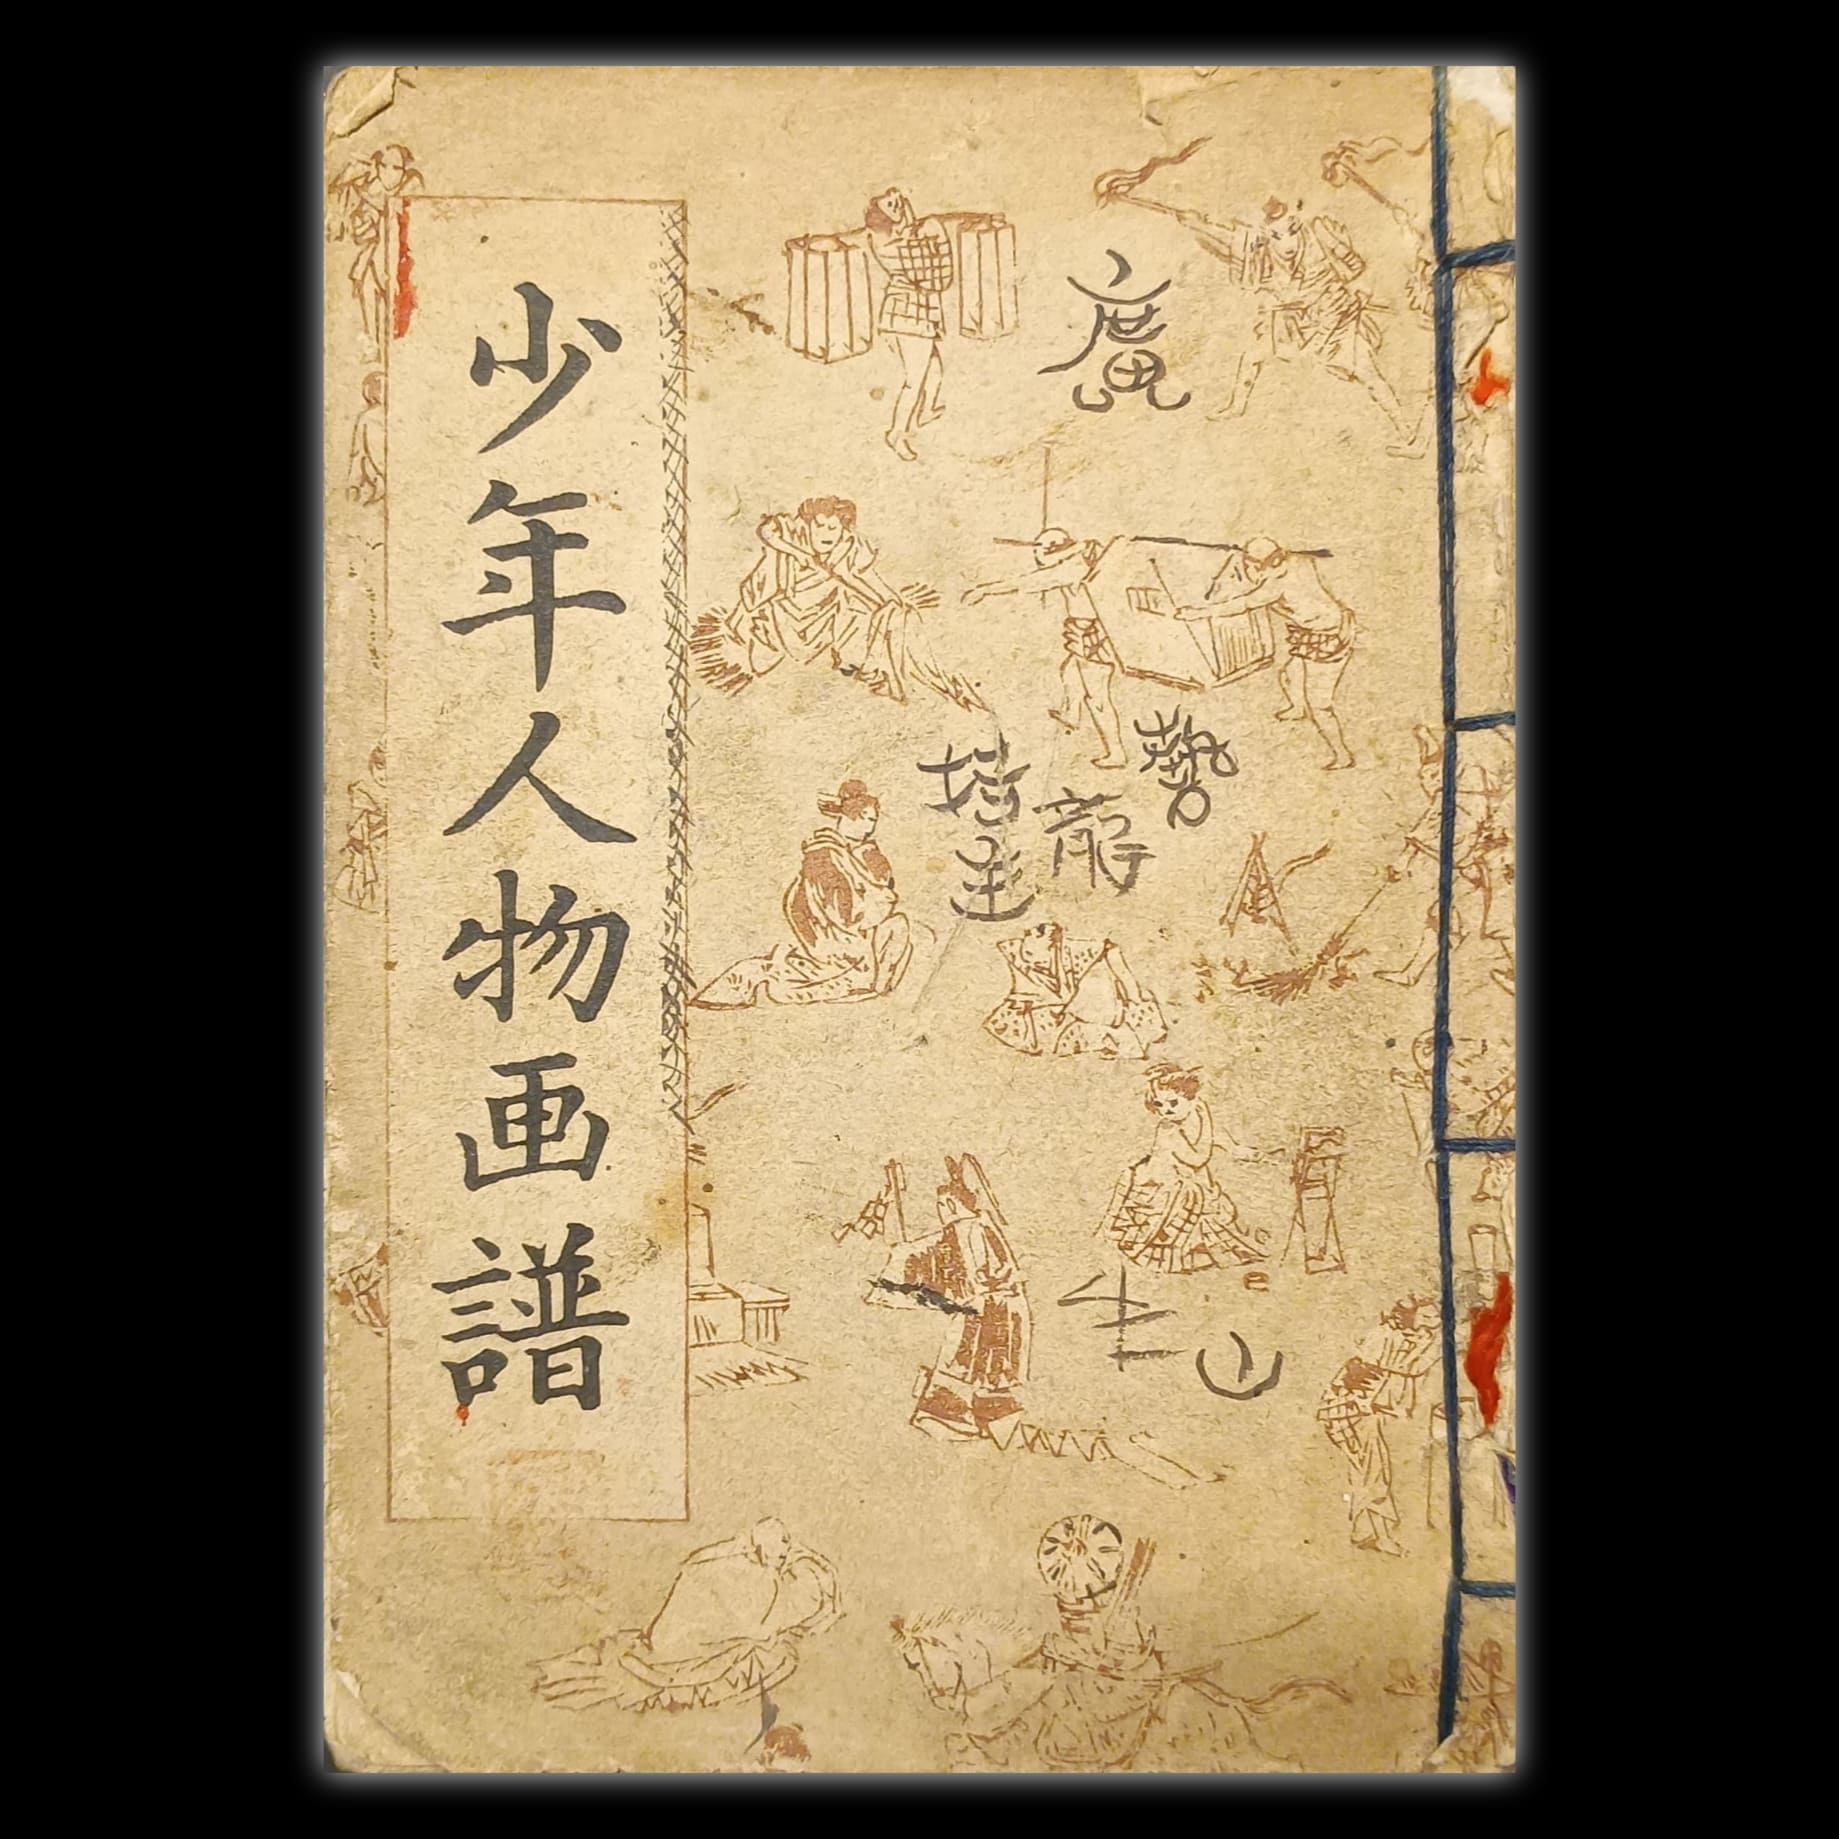 少年人物画譜
廣
藝
龍
塔
達
生
山